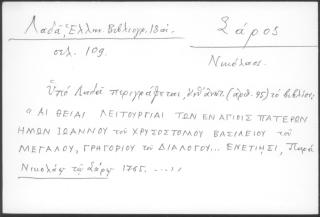 Λαδᾶ, Ἑλλην. Βιβλιογρ. 18 αἰ.
σελ. 109.
Σάρος
Νικόλαος.
Ὑπὸ Λαδᾶ περιγράφεται, (ἀριθ. 95) τὸ βιβλίον:
"ΑΙ ΘΕΙΑΙ ΛΕΙΤΟΥΡΓΙΑΙ ΤΩΝ ΕΝ ΑΓΙΟΙΣ ΠΑΤΕΡΩΝ
ΗΜΩΝ ΙΩΑΝΝΟΥ τοῦ ΧΡΥΣΟΣΤΟΜΟΥ ΒΑΣΙΛΕΙΟΥ τοῦ
ΜΕΓΑΛΟΥ, ΓΡΗΓΟΡΙΟΥ τοῦ ΔΙΑΛΟΓΟΥ... ΕΝΕΤΙΗΣΙ, Παρὰ
Νικολάῳ τῷ Σάρῳ 1765. .....